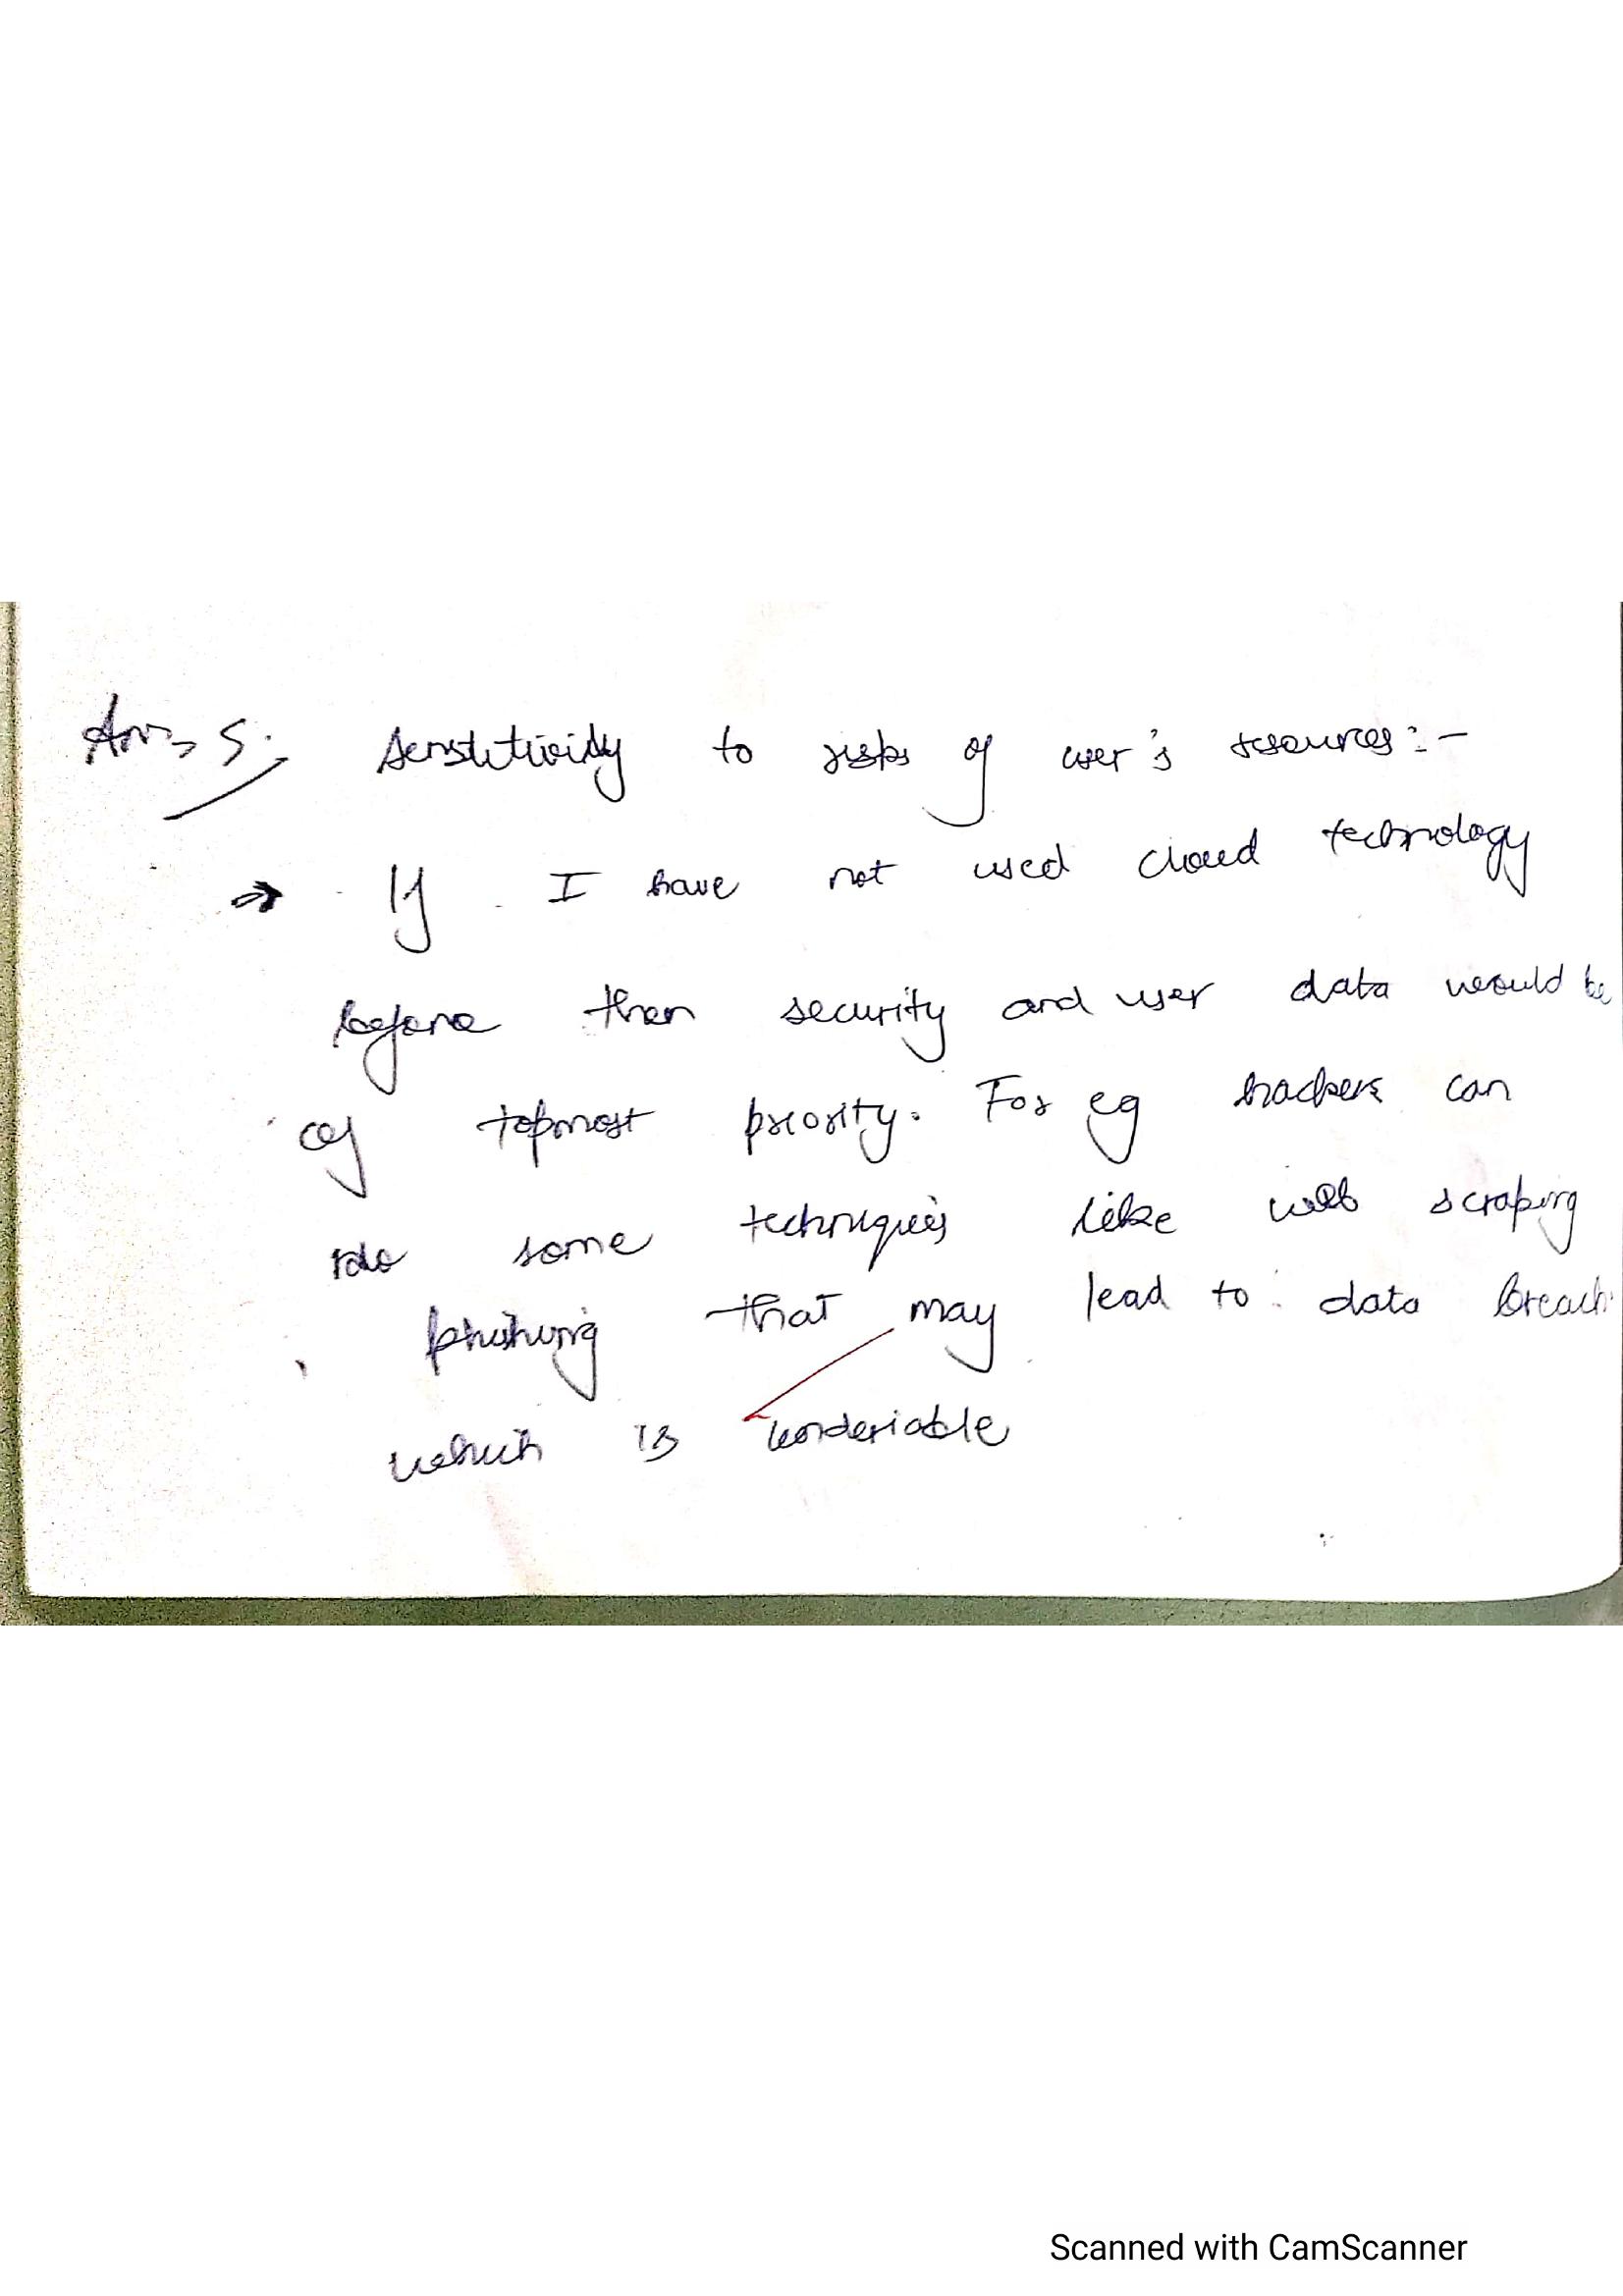 Ans 5. Senstitividy to risks of user's resources:-
⇒ If I have not used cloud technology
before then security and user data would be
of topmost priority. For eg hackers can
do some techniques like web scraping
, phishing that may lead to data breach
which is
Scanned with CamScanner